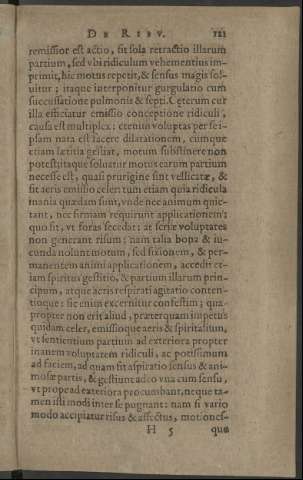 DE RISV. 121
remissior est actio, fit sola retractio illarum
partium, sed vbi ridiculum vehementius im-
primit, hic motus repetit, & sensus magis sol-
uitur; itaque interponitur gurgulatio cum
succussatione pulmonis & septi. Cęterum cur
illa efficiatur emissio conceptione ridiculi,
causa est multiplex: etenim voluptas per se i-
psam nata est facere dilatationem, cùmque
etiam lætitia gestiat, motum substinere non
potest: itaque soluatur motus earum partium
necesse est, quasi prurigine sint vellicatæ, &
fit aeris emissio celeri tum etiam quia ridicula
inania quædam sunt, vnde nec animum quie-
tant, nec firmam requirunt applicationem:
quo fit, vt foras secedat: at seriæ voluptates
non generant risum: nam talia bona & iu-
cunda nolunt motum, sed fixionem, & per-
manentem animi applicationem, accedit et-
iam spiritus gestitio, & partium illarum prin-
cipum, atque aeris respirati agitatio conten-
tioque: sic enim excernitur confestim; qua-
propter non erit aliud, præterquam impetus
quidam celer, emissioque aeris & spirituum,
vt sentientium partium ad exteriora propter
inanem voluptatem ridiculi, ac potissimum
ad faciem, ad quam fit aspiratio sensus & ani-
mosæ partis, & gestiunt adeo vna cum sensu,
vt prope ad exteriora procumbant, neque ta-
men isti modi inter se pugnant: nam si vario
modo accipiatur risus & affectus, motiones-
H 5 que